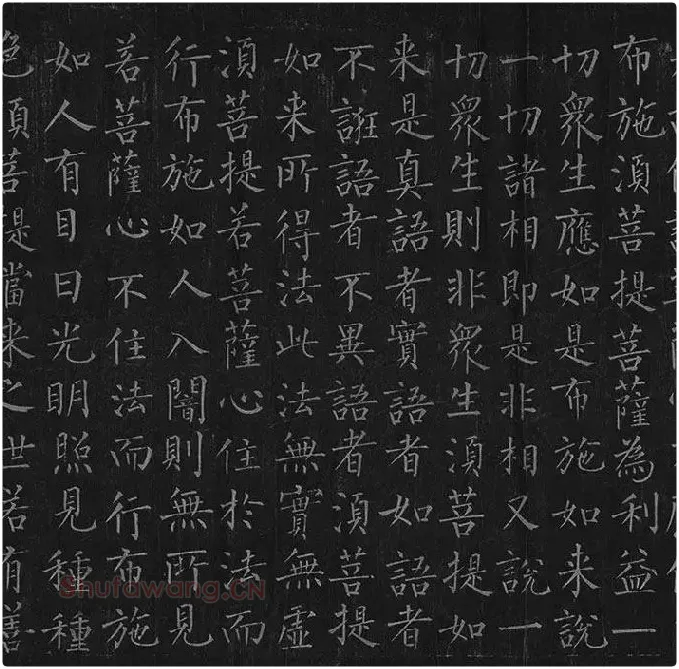 布施湏菩提菩薩為利益一
切衆生應如是布施如来說
一切諸相即是非相又說一
切衆生則非衆生湏菩提如
来是真語者實語者如語者
不誑語者不異語者湏菩提
如来所得法此法無實無虛
湏菩提若菩薩心住於法而
行布施如人入闇則無所見
若菩薩心不住法而行布施
如人有目日光明照見種種
色湏菩提當来之世若有善
Shufawang.CN